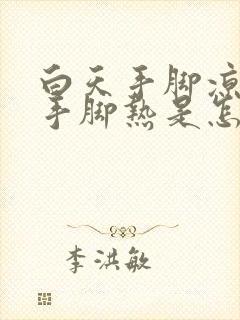 白天手脚凉
手脚热是怎
李洪敏